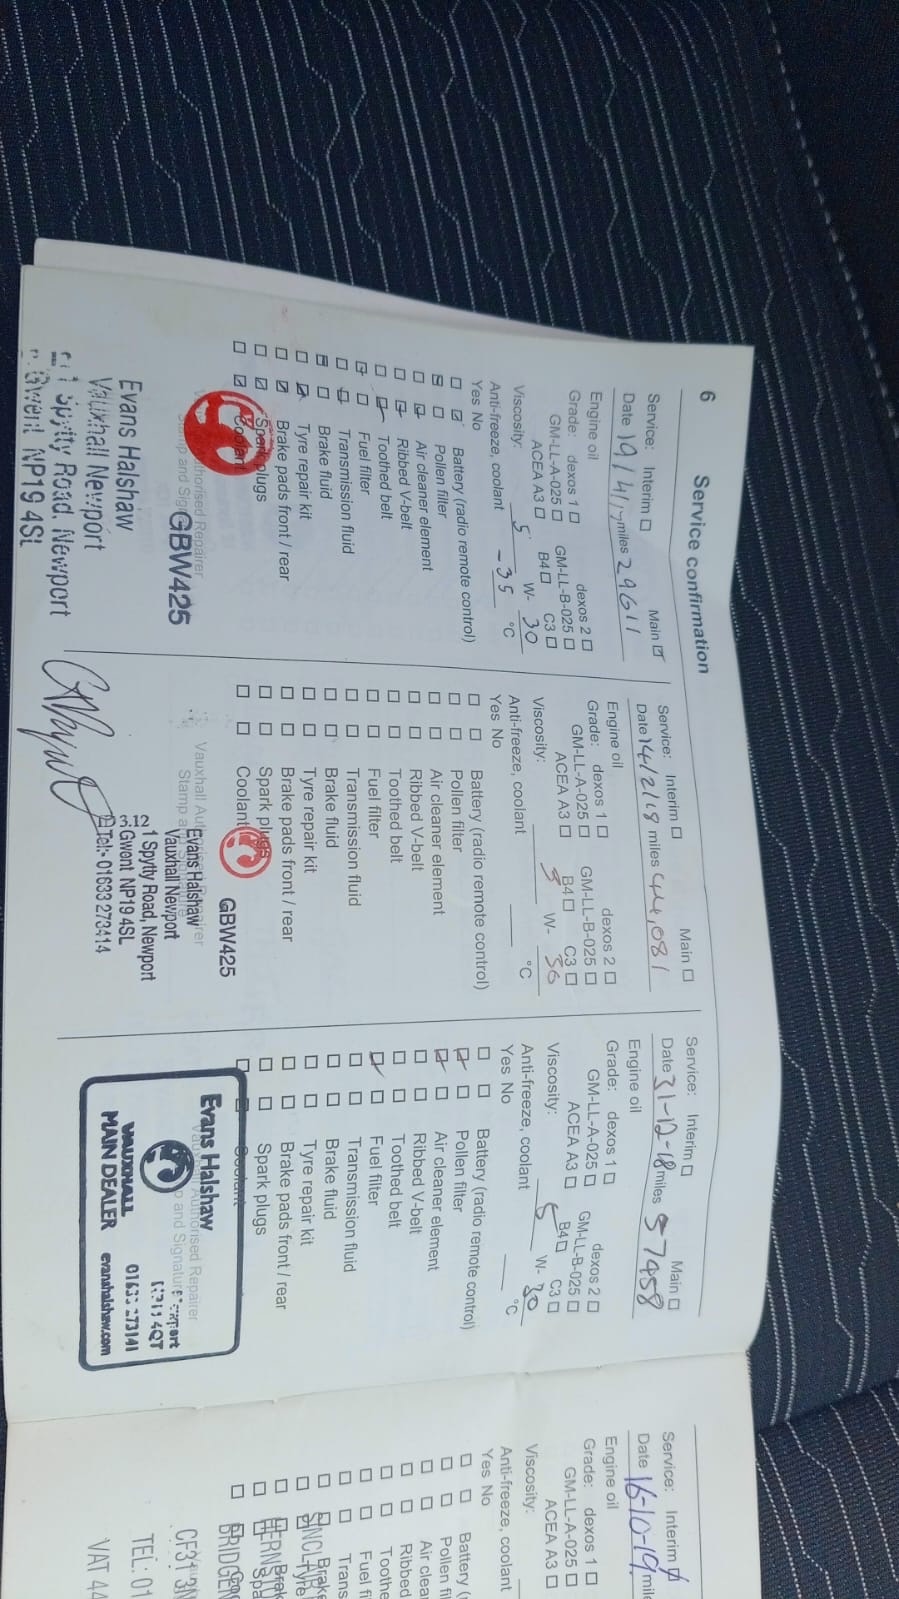 6 Service confirmation
Service: Interim ☐ Main ☑
Date 19/4/17 miles 29611
Engine oil
Grade: dexos 1 ☐ dexos 2 ☐
GM-LL-A-025 ☐ GM-LL-B-025 ☐
ACEA A3 ☐ B4 ☐ C3 ☐
Viscosity: 5 W- 30
Anti-freeze, coolant -35 °C
Yes No
Battery (radio remote control)
Pollen filter
Air cleaner element
Ribbed V-belt
Toothed belt
Fuel filter
Transmission fluid
Brake fluid
Tyre repair kit
Brake pads front / rear
Spark plugs
Coolant
GBW425
Evans Halshaw
Vauxhall Newport
Spytty Road, Newport
Gwent NP19 4SL
Service: Interim ☐ Main ☐
Date 14/2/18 miles 44,081
Engine oil
Grade: dexos 1 ☐ dexos 2 ☐
GM-LL-A-025 ☐ GM-LL-B-025 ☐
ACEA A3 ☐ B4 ☐ C3 ☐
Viscosity: 5 W- 30
Anti-freeze, coolant °C
Yes No
Battery (radio remote control)
Pollen filter
Air cleaner element
Ribbed V-belt
Toothed belt
Fuel filter
Transmission fluid
Brake fluid
Tyre repair kit
Brake pads front / rear
Spark plugs
Coolant
GBW425
Evans Halshaw
Vauxhall Newport
1 Spytty Road, Newport
Gwent NP19 4SL
Tel:- 01633 273414
Service: Interim ☐ Main ☐
Date 31-12-18 miles 57458
Engine oil
Grade: dexos 1 ☐ dexos 2 ☐
GM-LL-A-025 ☐ GM-LL-B-025 ☐
ACEA A3 ☐ B4 ☐ C3 ☐
Viscosity: 5 W- 30
Anti-freeze, coolant °C
Yes No
Battery (radio remote control)
Pollen filter
Air cleaner element
Ribbed V-belt
Toothed belt
Fuel filter
Transmission fluid
Brake fluid
Tyre repair kit
Brake pads front / rear
Spark plugs
Coolant
Evans Halshaw
Authorised Repairer
and Signature
VAUXHALL
MAIN DEALER evanshalshaw.com
Service: Interim
Date 16-10-19
Engine oil
Grade: dexos 1 ☐
GM-LL-A-025 ☐
ACEA A3 ☐
Viscosity:
Anti-freeze, coolant
Yes No
Battery
Pollen
Air
Ribbed
Toothed
Fuel
Trans
Brake
TEL: 01
VAT 44